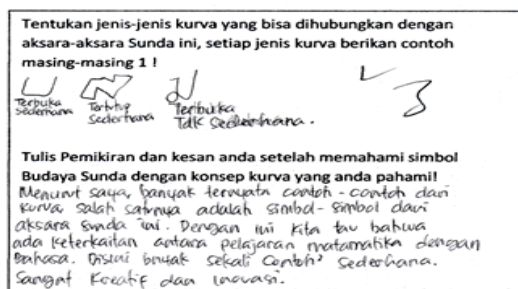 Tentukan jenis-jenis kurva yang bisa dihubungkan dengan
aksara-aksara Sunda ini, setiap jenis kurva berikan contoh
masing-masing 1 !
Terbuka Sederhana
Tertutup Sederhana
Terbuka Tdk Sederhana.
3
Tulis Pemikiran dan kesan anda setelah memahami simbol
Budaya Sunda dengan konsep kurva yang anda pahami!
Menurut saya, banyak ternyata contoh-contoh dari
kurva, salah satunya adalah simbol-simbol dari
aksara sunda ini. Dengan ini kita tau bahwa
ada keterkaitan antara pelajaran matamatika dengan
Bahasa. Disini bnyak sekali Contoh² Sederhana.
Sangat Kreatif dan inovasi.